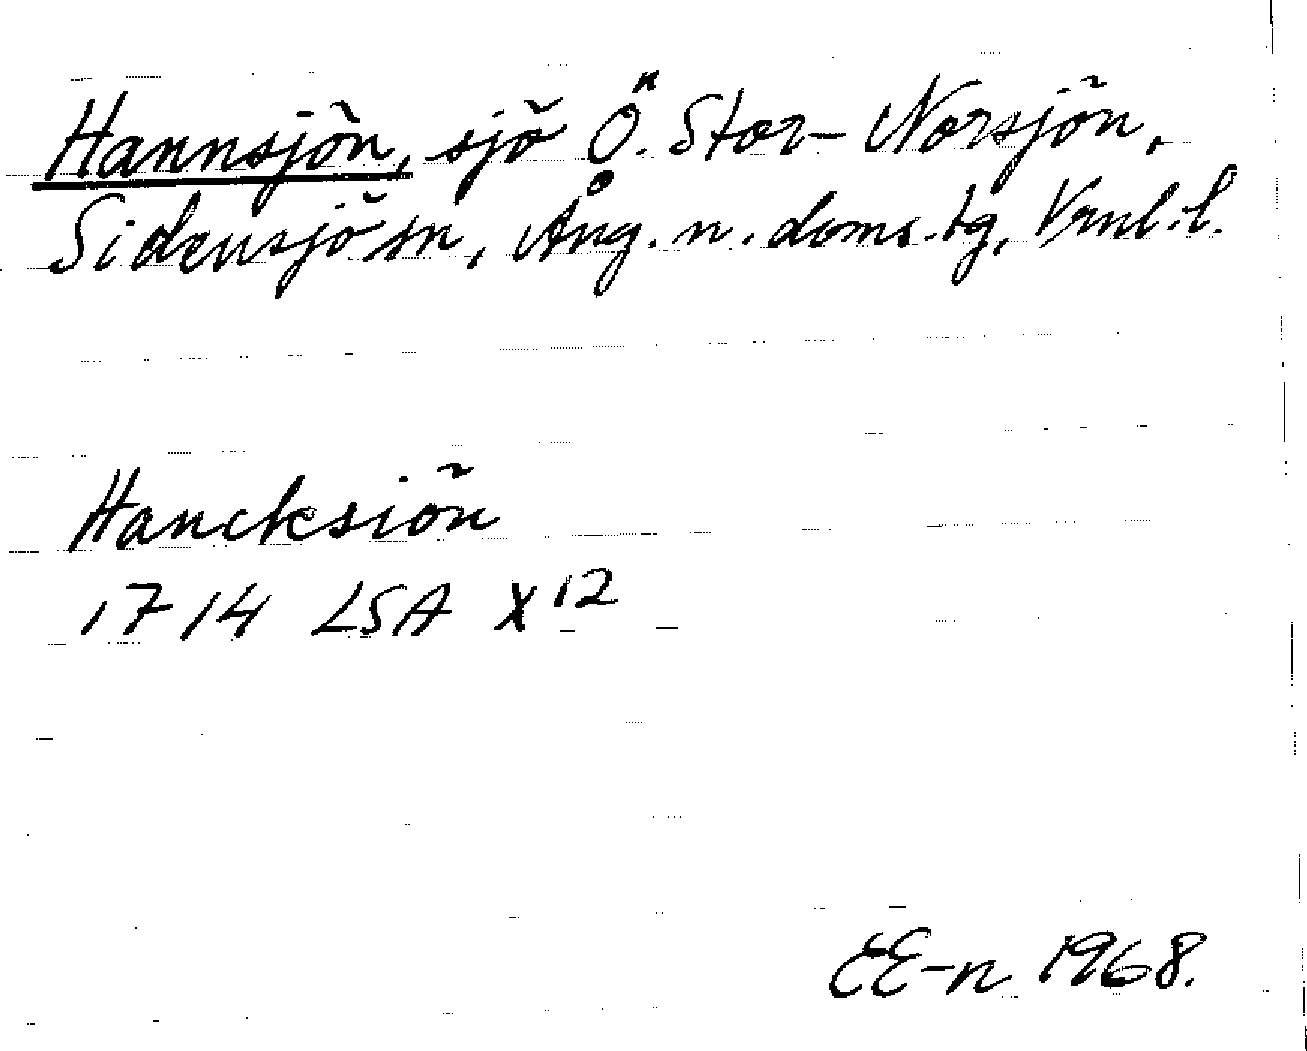 Hannsjön, sjö Ö. Stor-Norsjön,
Sidensjö sn, Ång. n. doms.tg, Vrnl. l.
Hancksiön
1714 LSA X 12
EE-n 1968.